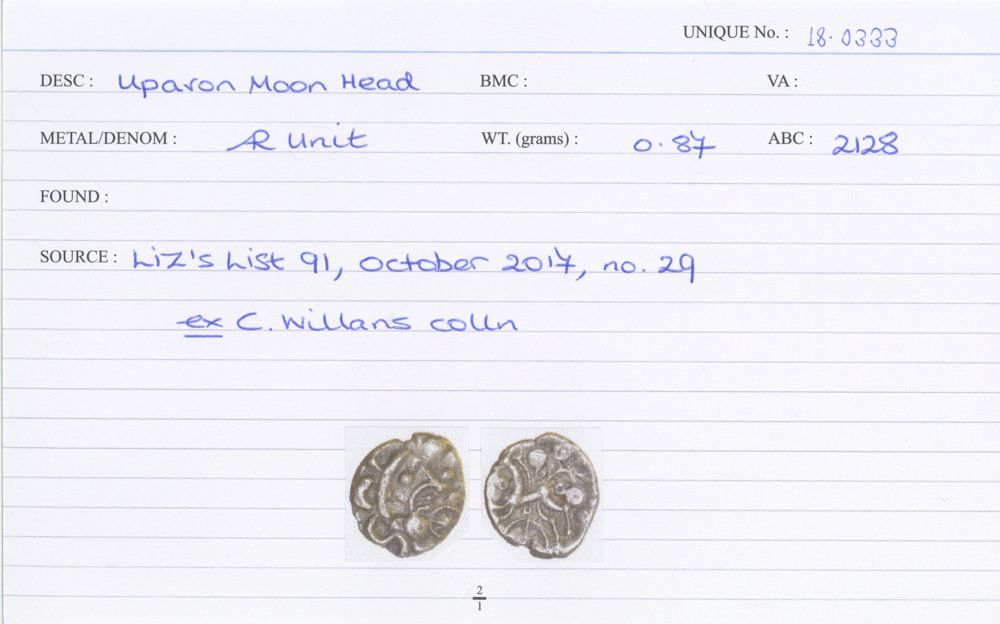 UNIQUE No. : 18.0333
DESC : Uparon Moon Head BMC : VA :
METAL/DENOM : AR Unit WT. (grams) : 0.87 ABC : 2128
FOUND :
SOURCE : Liz's List 91, October 2017, no. 29
ex C. Willans colln
2
1